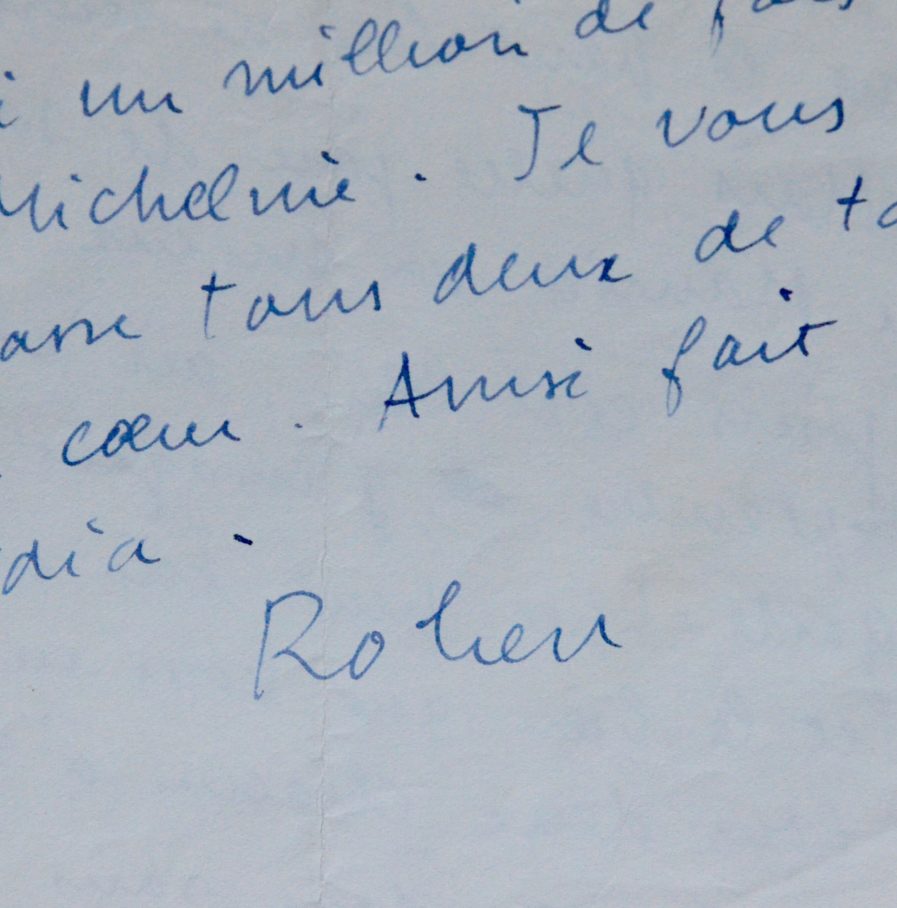 i un million de fois
Micheline. Je vous
asse tous deux de to
cœur. Ainsi fait
dia.
Rohen